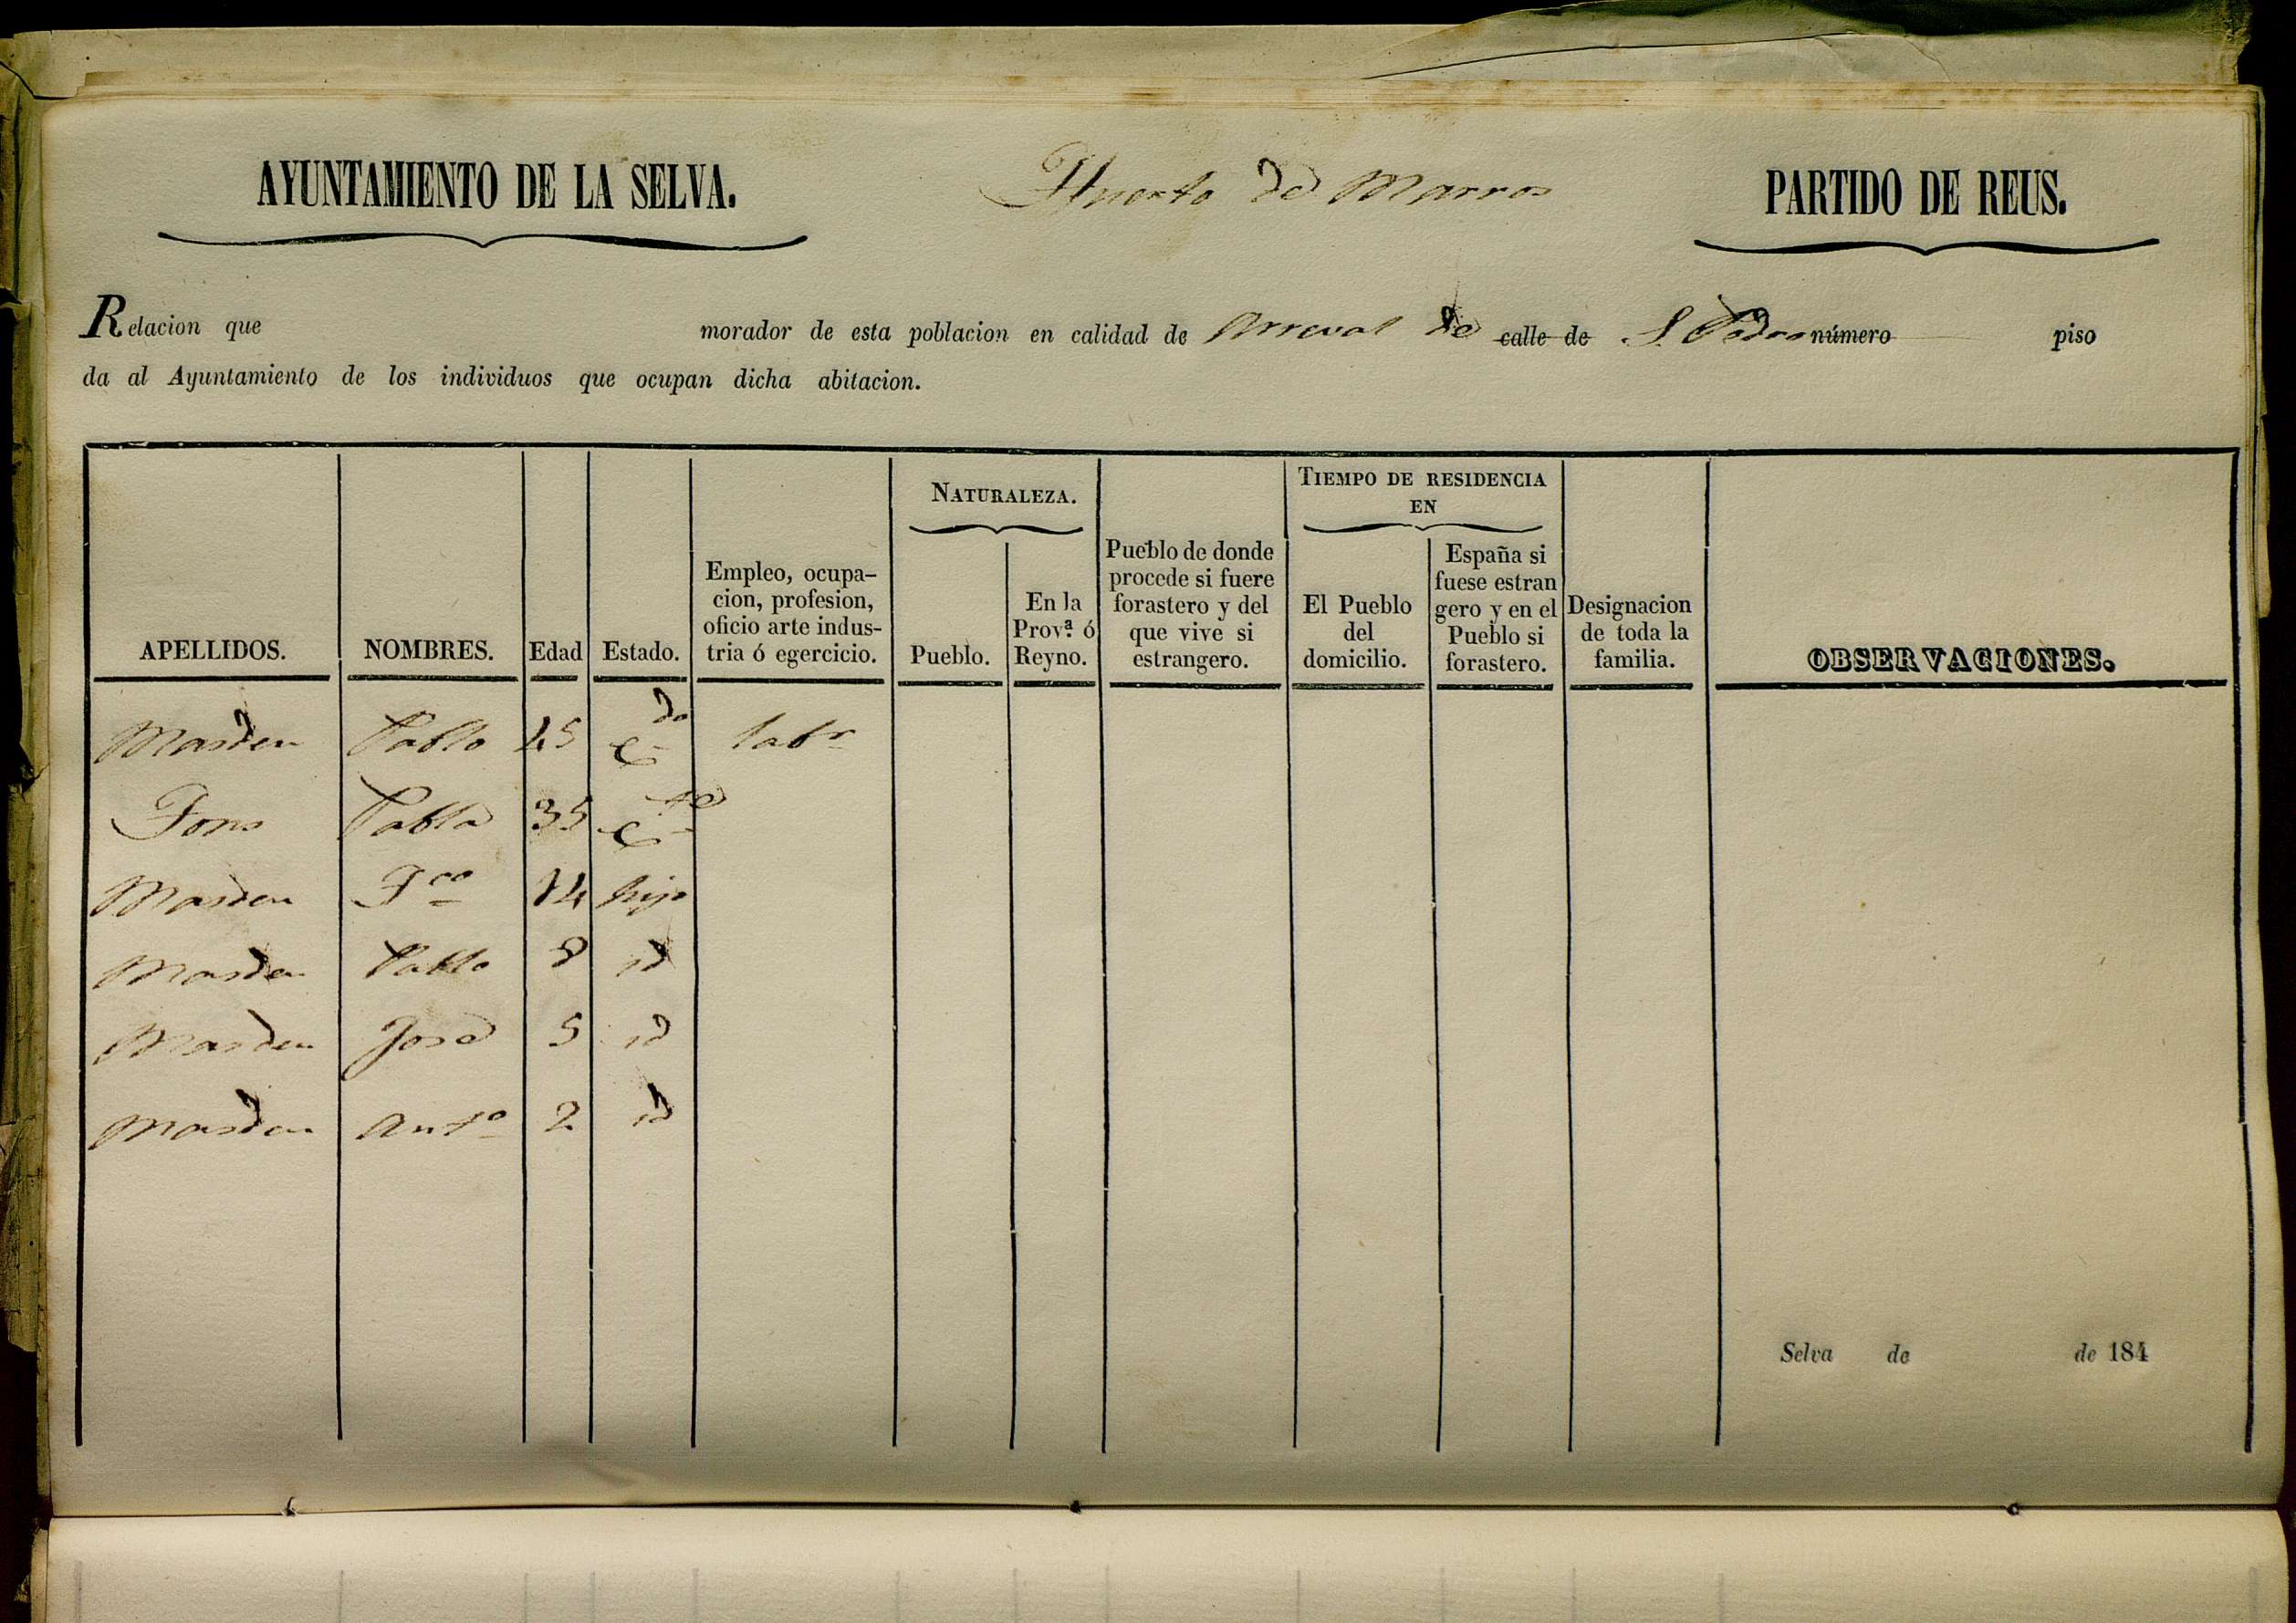 AYUNTAMIENTO DE LA SELVA. Huerto de Marros PARTIDO DE REUS.
Relacion que morador de esta poblacion en calidad de Arreval de calle de S. Pedro número piso
da al Ayuntamiento de los individuos que ocupan dicha abitacion.
APELLIDOS. NOMBRES. Edad Estado. Empleo, ocupa-
cion, profesion,
oficio arte indus-
tria ó egercicio.
NATURALEZA.
Pueblo. En la
Prov.ª ó
Reyno.
Pueblo de donde
procede si fuere
forastero y del
que vive si
estrangero.
TIEMPO DE RESIDENCIA
EN
El Pueblo
del
domicilio.
España si
fuese estran
gero y en el
Pueblo si
forastero.
Designacion
de toda la
familia.
OBSERVACIONES.
Masdeu Pablo 45 C.do labr
Fons Pabla 35 C.
Masdeu Fco 14 hijo
Masdeu Pablo 8 id
Masdeu José 5 id
Masdeu Anto 2 id
Selva de de 184